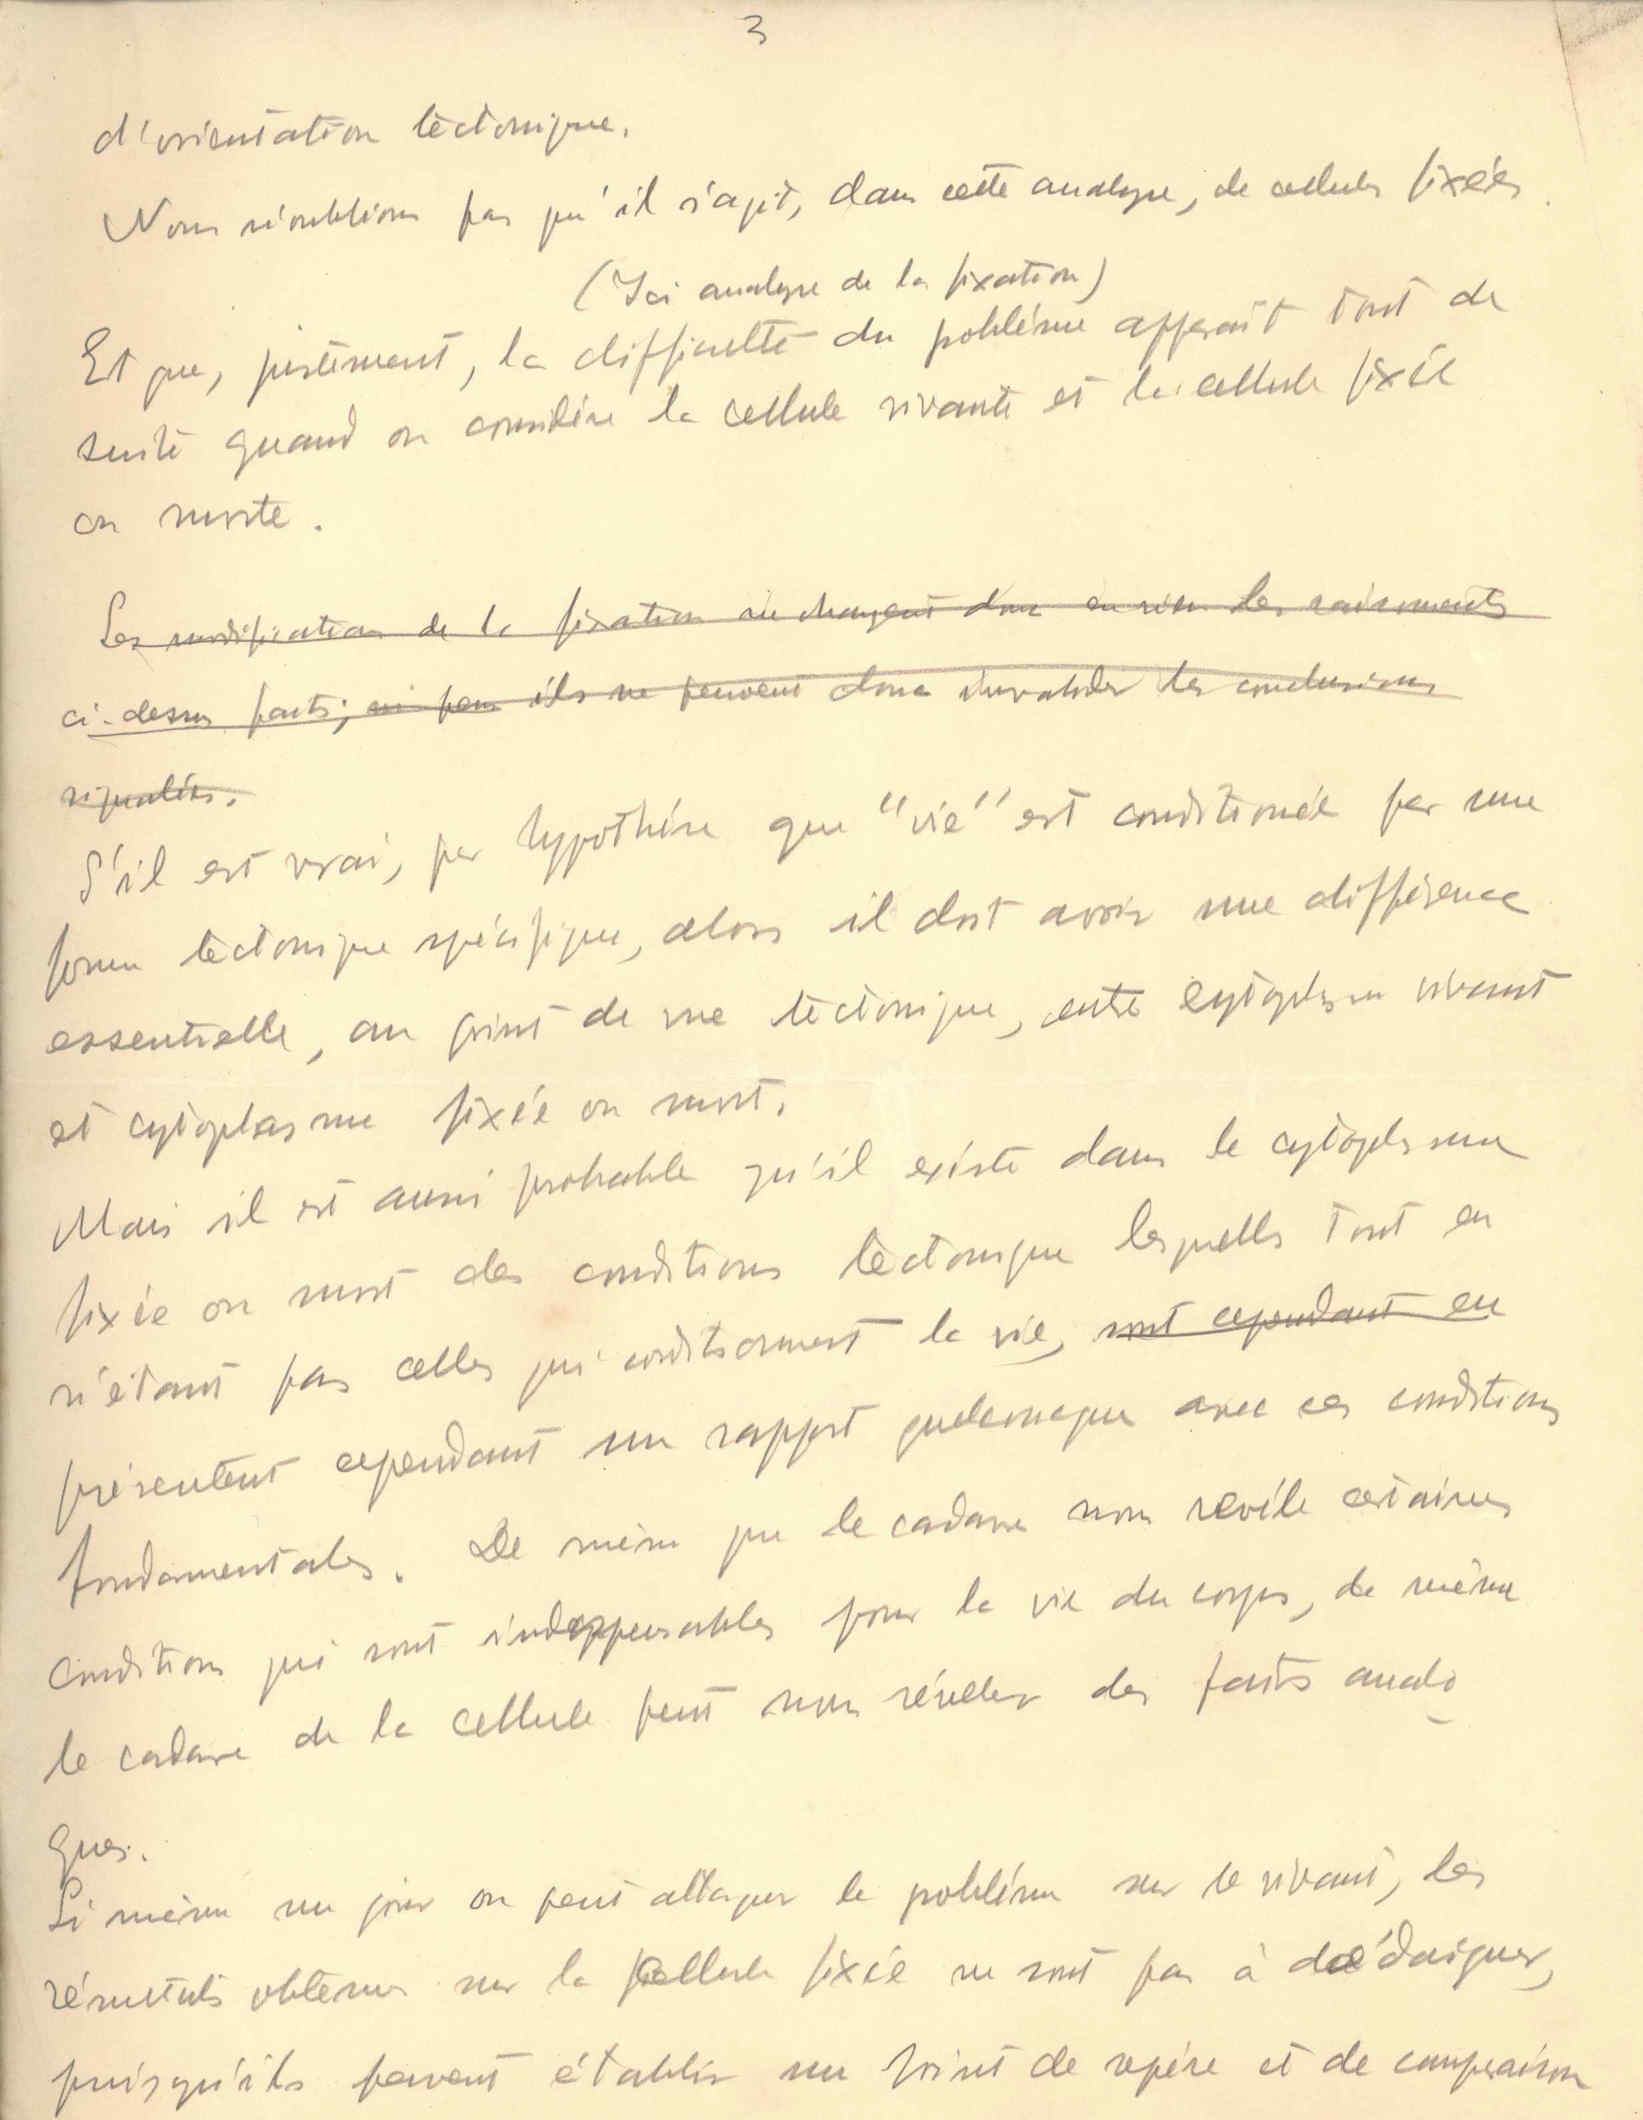 3
d'orientation tèctonique.
Nous n'oublions pas qu'il s'agit, dans cette analyse, de cellules fixées.
(Ici analyse de la fixation)
Et que, justement, la difficulté du problème apparait tout de
suite quand on considère la cellule vivante et la cellule fixée
ou morte.
Les modifications de la fixation ne changent donc en rien les raisonnements
ci-dessus faits; ni peu ils ne peuvent donc invalider les conclusions
signalées.
S'il est vrai, par hypothèse que "vie" est conditionée par une
forme tèctonique spécifique, alors il doit avoir une différence
essentielle, au point de vue tèctonique, entre cytoplasme vivant
et cytoplasme fixée ou mort.
Mais il est aussi probable qu'il existe dans le cytoplasme
fixée ou mort des conditions tèctonique lesquelles tout en
n'étant pas celles qui conditionnent la vie, sont cependant en
présentent cependant un rapport quelconque avec ces conditions
fondamentales. De même que le cadavre nous revèle certaines
conditions qui sont indispensables pour la vie du corps, de même
le cadavre de la cellule peut nous réveler des faits analo
gues.
Si même un jour on peut attaquer le problème sur le vivant, les
résultats obtenus sur la cellule fixée ne sont pas à dédaigner,
puisqu'ils peuvent établir un point de repère et de comparaison